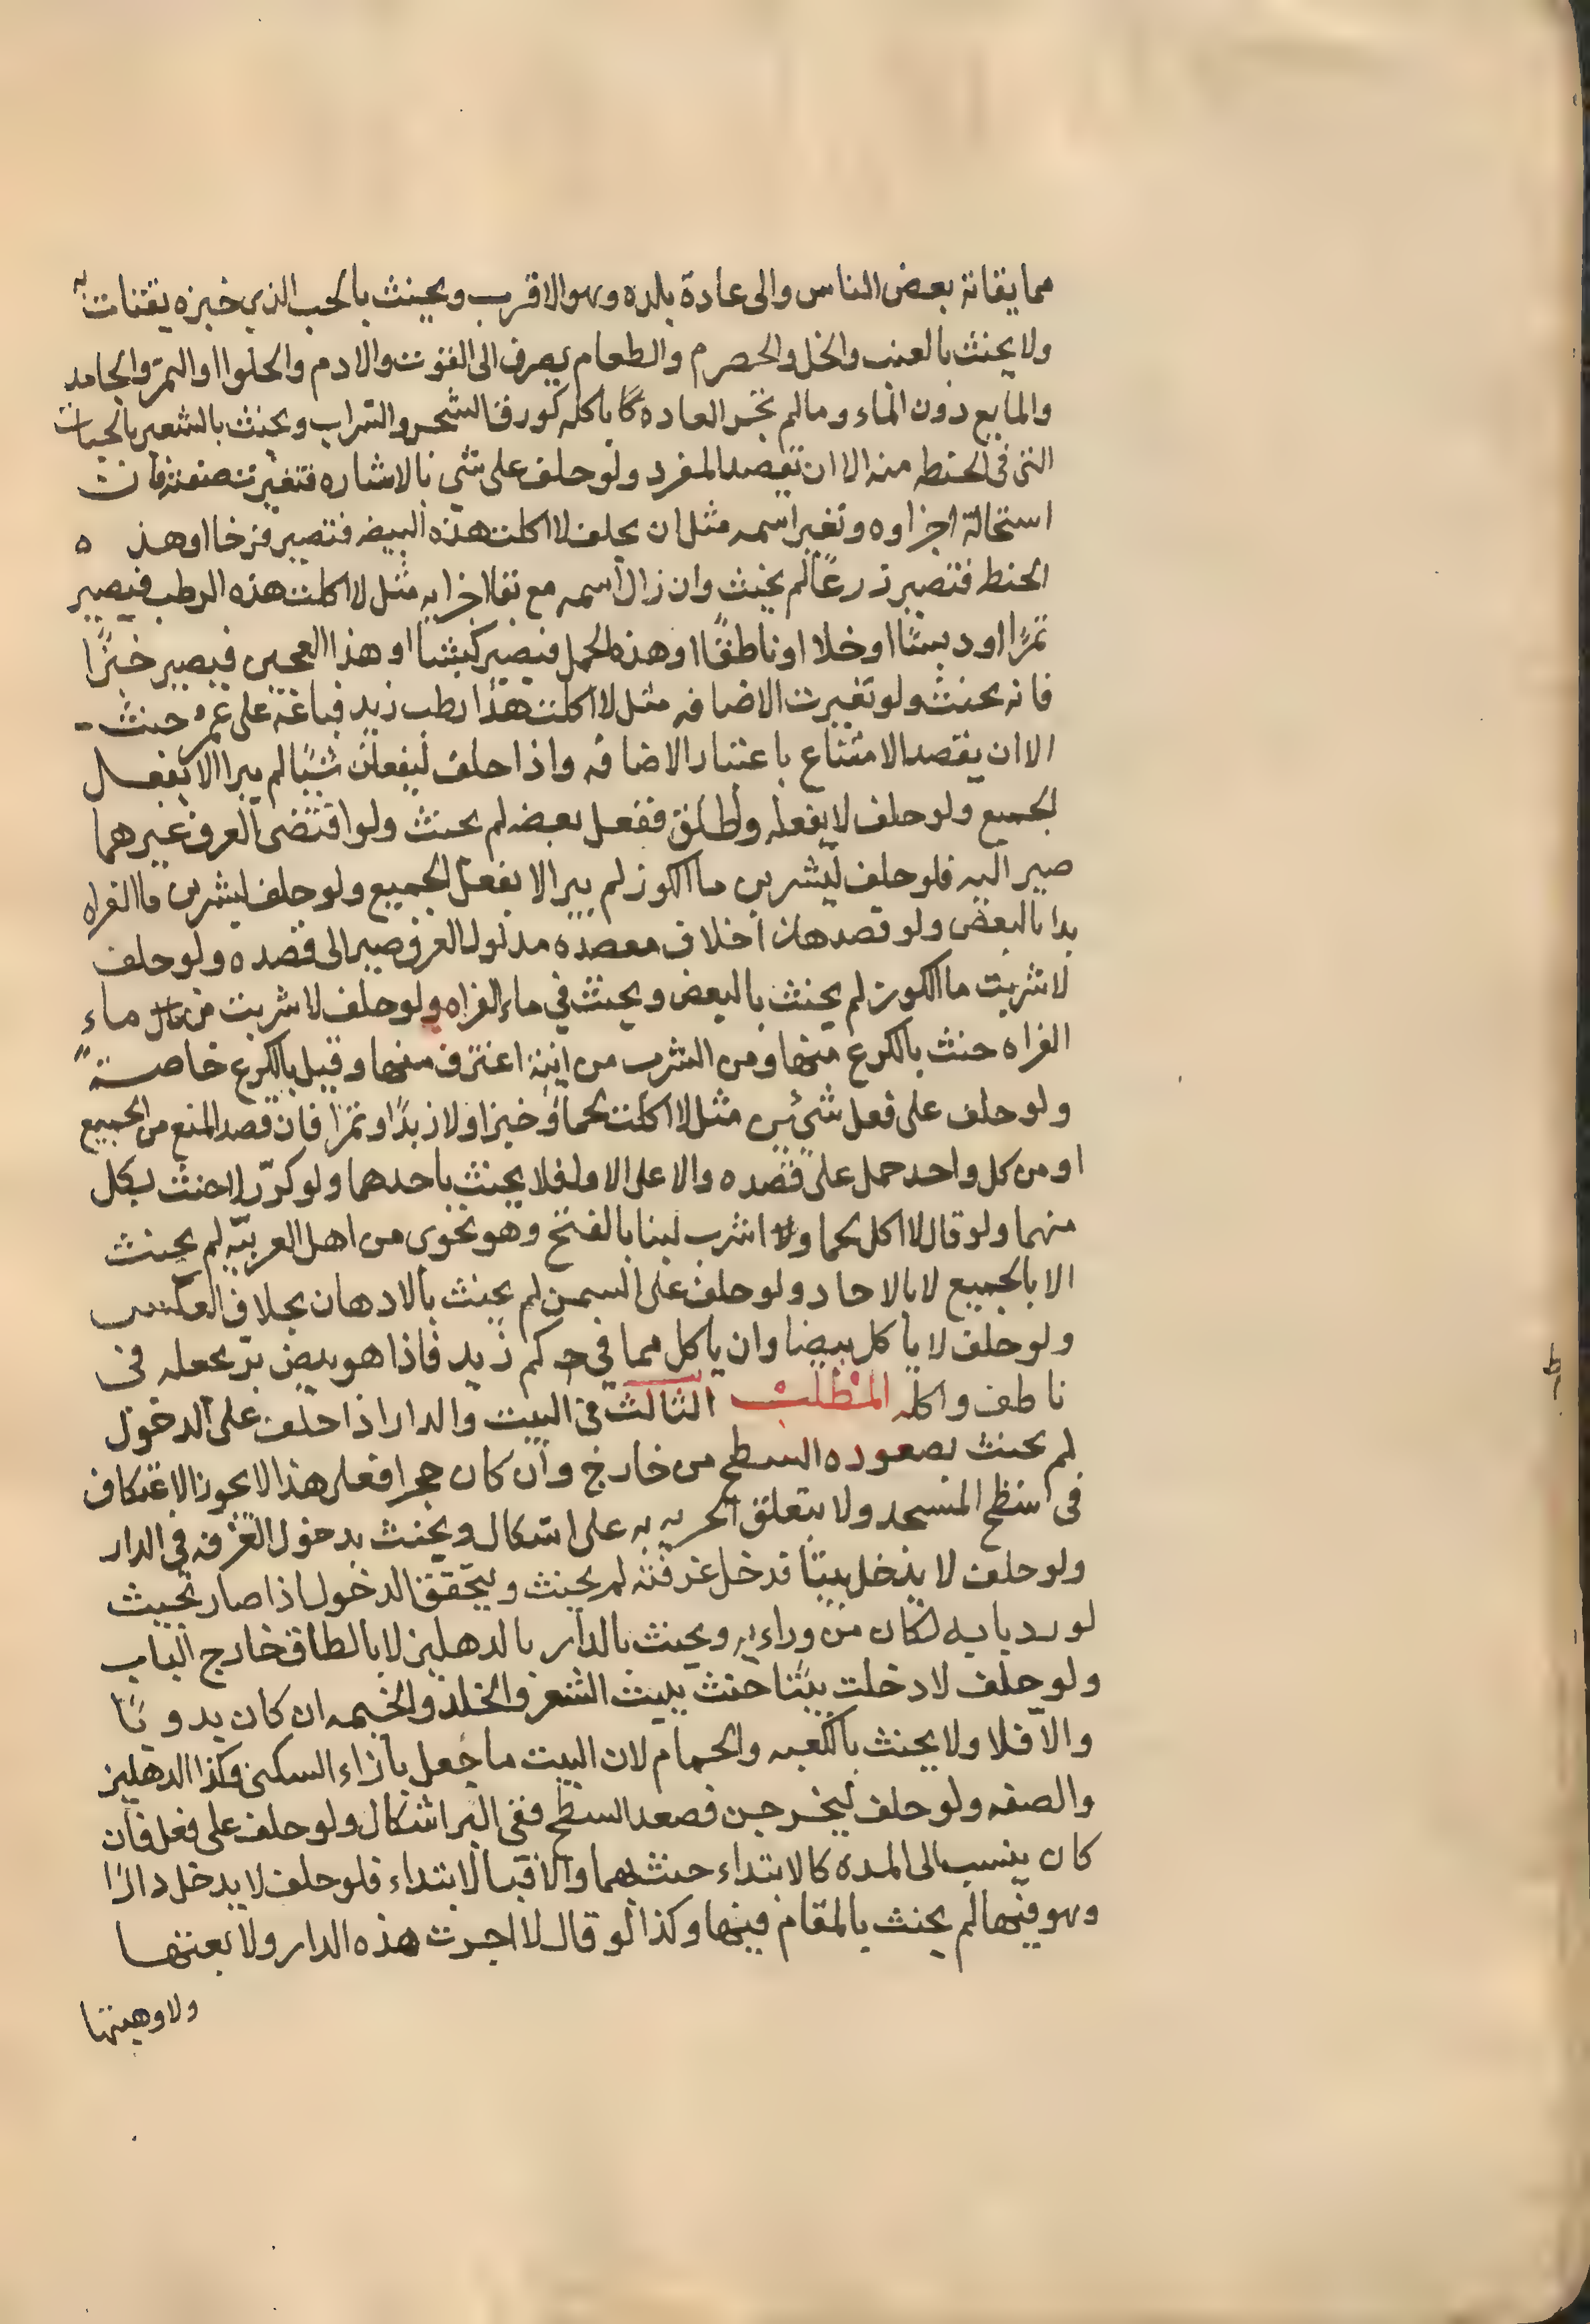 مما يقاته بعض الناس والى عادة بلده وهو الاقرب ويحنث بالحب الذي خبزه يقتات به
ولا يحنث بالعنب والخل والحصرم والطعام يصرف الى القوت والادم والحلوا والتمر والجامد
والمايع دون الماء وما لم تجر العاده باكله كورق الشجر والتراب ويحنث بالشعير بالحبات
التى فى الحنطه منه الا ان يقصد المفرد ولو حلف على شي بالاشاره فتغيرت صفته فان
استحالة اجزاوه وتغير اسمه مثل ان يحلف لا اكلت هذه البيضه فتصير فرخا او هذه
الحنطه فتصير زرعًا لم يحنث وان زال اسمه مع بقا اجزايه مثل لا اكلت هذه الرطب فيصير
تمرًا او دبسًا او خلا او ناطفًا او هذه الحمل فيصير كبشا او هذا العجين فيصير خبزًا
فانه يحنث ولو تغيرت الاضافه مثل لا اكلت هذا رطب زيد فباعه على عمرو حنث
الا ان يقصد الامتناع باعتبار الاضافه واذا حلف ليفعلن شيًا لم يبرا الا بفعل
الجميع ولو حلف لا يفعله واطلق ففعل بعضه لم يحنث ولو اقتضى العرف غيرهما
صير اليه فلو حلف ليشربن ما الكوز لم يبر الا بفعل الجميع ولو حلف ليشربن ما الفراه
برا بالبعض ولو قصد خلاف مدلول العرف صير الى قصده ولو حلف
لا شربت ما الكوز لم يحنث بالبعض ويحنث في ماء الفراه ولو حلف لا شربت من ماء
الفراه حنث بالكرع منها ومن الشرب من انية اغترف منها وقيل بالكرع خاصة
ولو حلف على فعل شيئين مثل لا اكلت لحما وخبزا ولا زبدًا وتمرا فان قصد المنع من الجميع
او من كل واحد حمل على قصده والا على الاول فلا يحنث باحدهما ولو كرّر لا حنث بكل
منهما ولو قال لا اكل لحما ولا اشرب لبنا بالفتح وهو نحوى من اهل العربيّه لم يحنث
الا بالجميع لا بالاحاد ولو حلف على السمن لم يحنث بالادهان بخلاف العكس
ولو حلف لا ياكل بيضا وان ياكل مما في كم زيد فاذا هو بيض برّ بجعله فى
ناطف واكله المطلب الثالث فى البيت والدار اذا حلف على الدخول
لم يحنث بصعوده السطح من خارج وان كان محجرا فعلى هذا لا يجوز الاعتكاف
فى سطح المسجد ولا يتعلق الحرمه به على اشكال ويحنث بدخول الغرفه فى الدار
ولو حلف لا يدخل بيتًا فدخل غرفته لم يحنث ويتحقق الدخول اذا صار بحيث
لو رد بابه لكان من وراءيه ويحنث بالدار بالدهليز لا بالطاق خارج الباب
ولو حلف لا دخلت بيتا حنث ببيت الشعر والجلد والخيمه ان كان بدويًا
والا فلا ولا يحنث بالكعبه والحمام لان البيت ما جعل بازاء السكنى وكذا الدهليز
والصفه ولو حلف ليخرجن فصعد السطح ففى البر اشكال ولو حلف على فعل فان
كان ينسب الى المدة كالابتداء حنث بهما والا فبالابتداء فلو حلف لا يدخل دارًا
وهو فيها لم يحنث بالمقام فيها وكذا لو قال لا اجرت هذه الدار ولا بعتها
ولا وهبتها